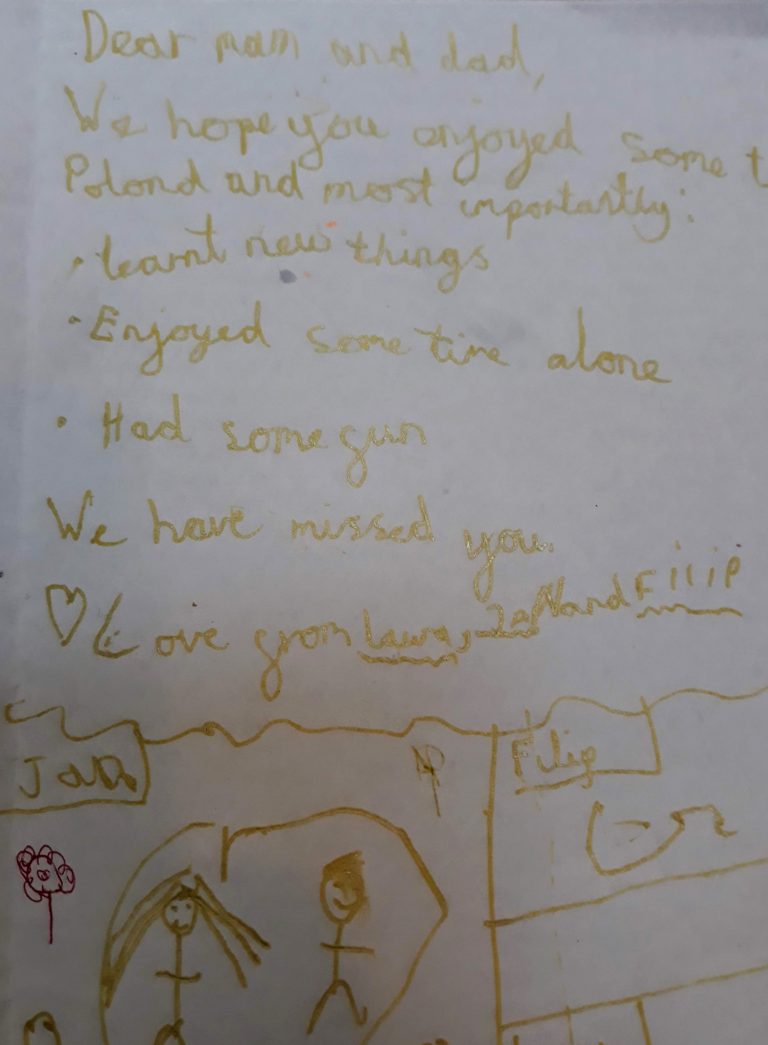 Dear mam and dad,
We hope you enjoyed some t
Polond and most inportantly:
• learnt new things
• Enjoyed some time alone
• Had some gun
We have missed you.
♡ Love grom Laura, Jan and Filip
Jan
Filip